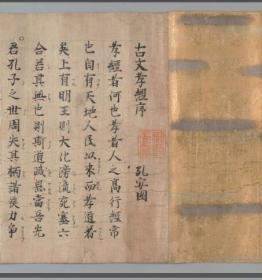 古文孝經序
孔安國
孝經者何也孝者人之高行經常
也自有天地人民以來而孝道著
矣上有明王則大化滂流充塞六
合若其無也則斯道滅息當吾先
君孔子之世周失其柄諸侯力争